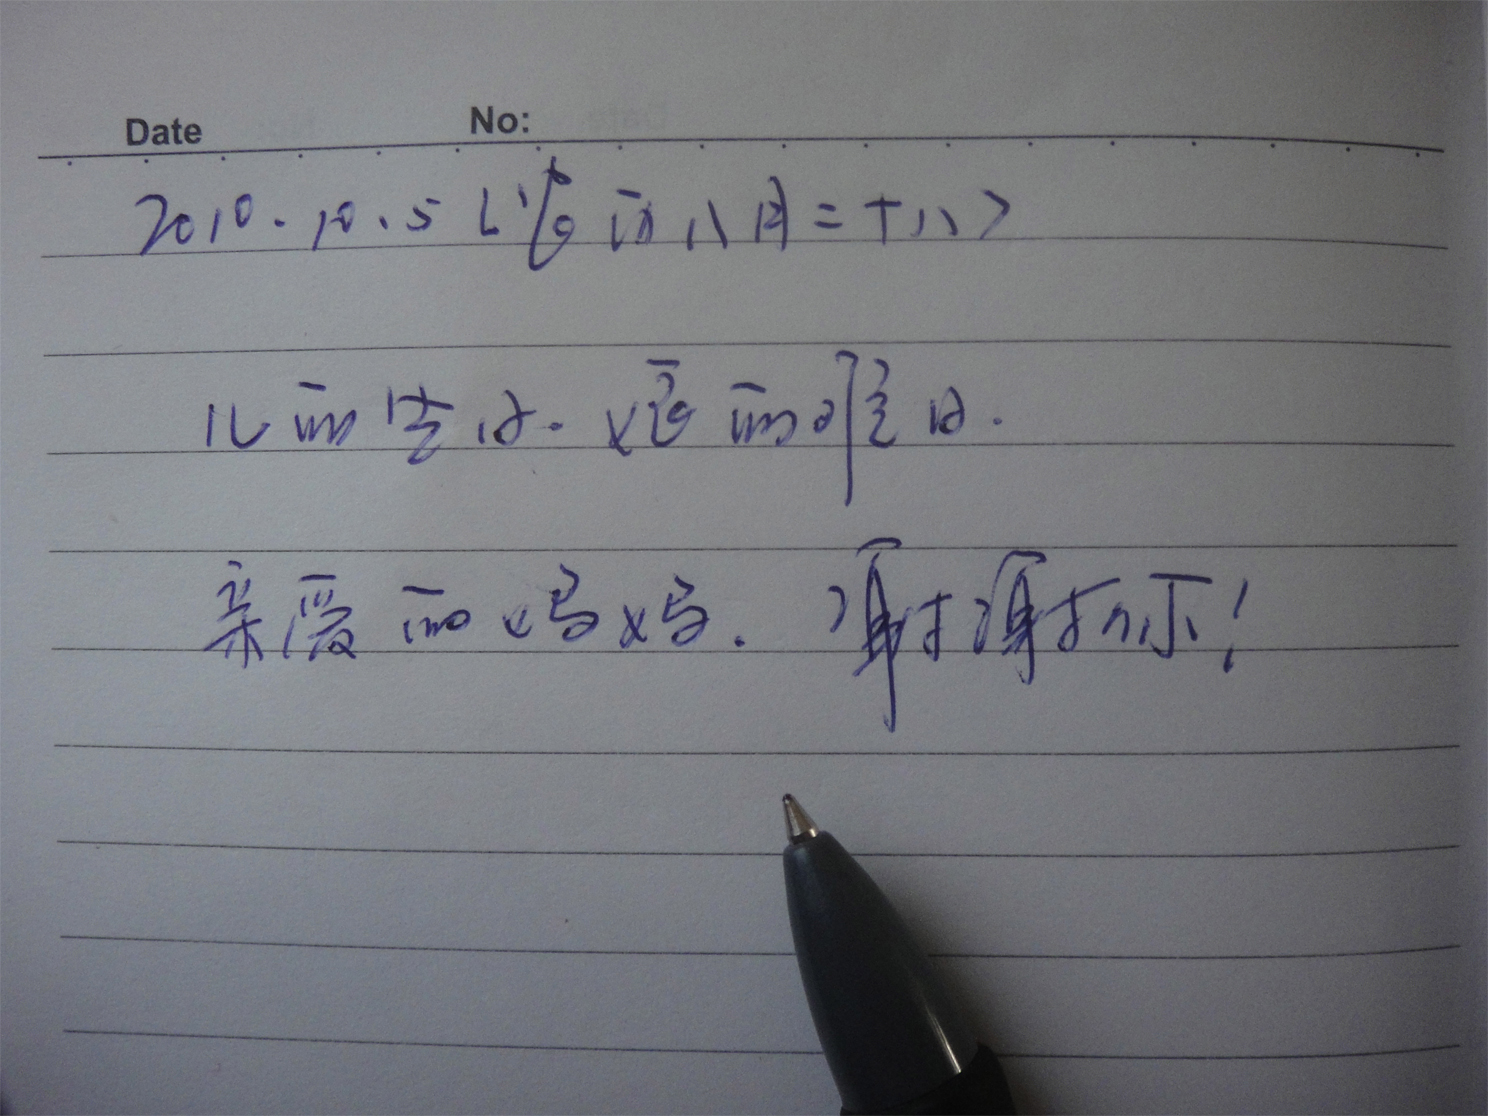 Date No:
2010.10.5(农历八月二十八)
儿的生日.娘的难日.
亲爱的妈妈.谢谢你!